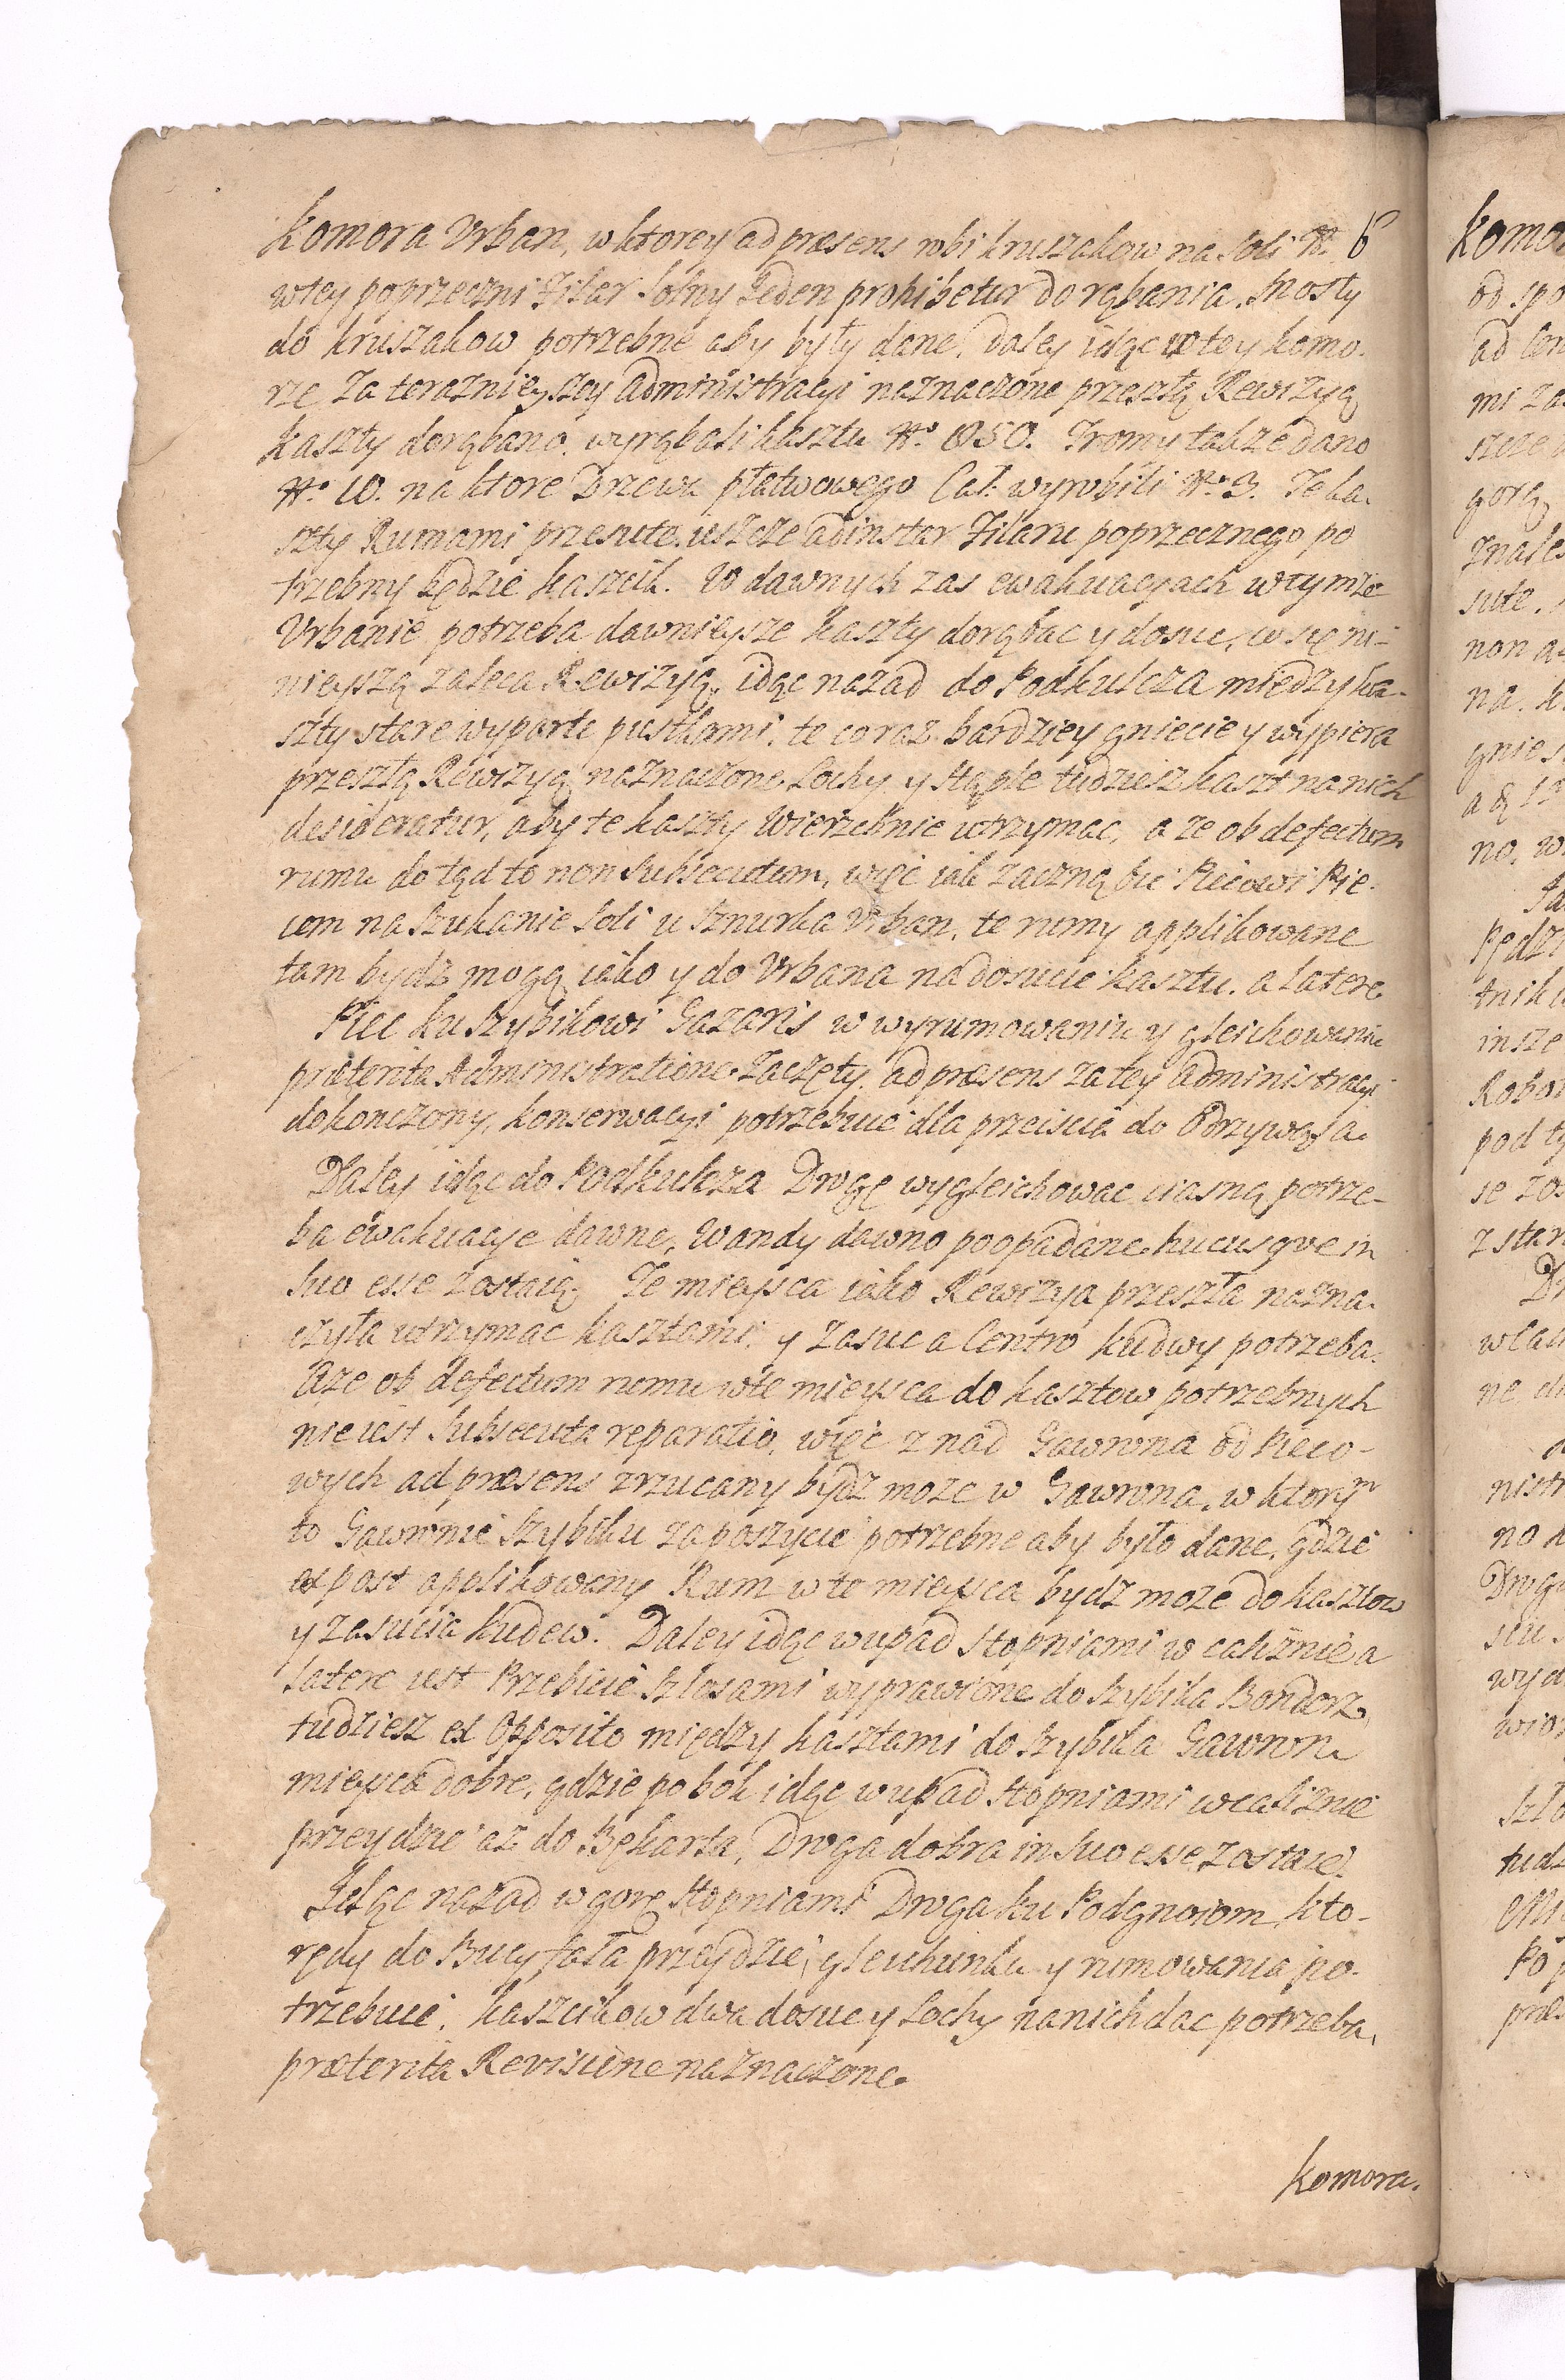 Komora Vrban, w ktorey ad præsens robi kruszakow na soli No. 6
w tey poprzeczni Filar solny Jeden prohibetur do rąbania. Mosty
do kruszakow potrzebne aby były dane. Daley idąc w tey komo-
rze za terazniey szey Administracyi naznaczone przeszłą Rewizyą
kaszty dorąbano. wyrąbali kasztu No. 1050. Tromy także dano
No. 10. na ktore Drzewa płatwowego Cał: wyrobili No. 3. Te ka-
szty Rumami przesute. ieszcze ad instar Filaru poprzecznego po
trzebny będzie kaszcik. W dawnych zas ewakuacyach w tymże
Vrbanie potrzeba dawnieysze kaszty dorąbac y dosuc, co się ni-
nieyszą zaleca Rewizyą. idąc nazad do Podkulcza między ka-
szty stare wyparte pustkami. te coraz bardziey gniecie y wypiera
przeszłą Rewizyą naznaczone Lochy y stęple tudziesz kaszt na nich
desideratur, aby te kaszty wierzchnie utrzymac, a ze ob defectum
rumu do tąd to non subsecutum, więc iak zaczną bic Piecowi Pie-
cem na szukanie soli u sznurka Vrban, te rumy applikowane
tam bydz mogą iako y do Vrbana na dosucie kasztu. a latere
Piec ku Szybikowi Gazaris w wyrumowaniu y gleichowaniu
præterita Administratione zaczęty. ad præsens za tey Administracyi
dokonczony, konserwacyi potrzebuie dla przeiscia do Odrzywoła.
Daley idąc do Podkulcza Drogę wygleichowac ciasną potrze-
ba ewakuacye dawne, Wandy dawno poopadane hucusqve in
suo esse zostaią. Te mieysca iako Rewizya przeszła nazna-
czyła utrzymac kasztami, y zasuc a Centro kudwy potrzeba.
Aże ob defectum rumu w te mieysca do kasztow potrzebnych
nie iest subsecuta reparatio, więc z nad Gawrona od Pieco-
wych ad præsens zrzucany bydz moze w Gawrona, w ktorym
to Gawronie Szybiku zaposzycie potrzebne aby było dane. gdzie
ex post applikowany Rum w te mieysca bydz moze do kasztow
y zasucia kudew. Daley idąc w upad stopniami w caliznie a
latere iest Przebicie szlosami wyprawione do Szybika Bondarz,
tudziesz ex opposito między kasztami do Szybika Gawrona
mieysca dobre, gdzie po bok idąc w upad stopniami w caliznie
przeydzie az do Bękarta, Droga dobra in suo esse zostaie.
Jdąc nazad w gorę stopniami Droga ku Podgnoiom, kto-
rędy do Bucyfała przeydzie, gleichunku y rumowania po-
trzebuie. kaszcikow dwa dosuc y Lochy na nich dac potrzeba,
præterita Revisione naznaczone.
Komora.